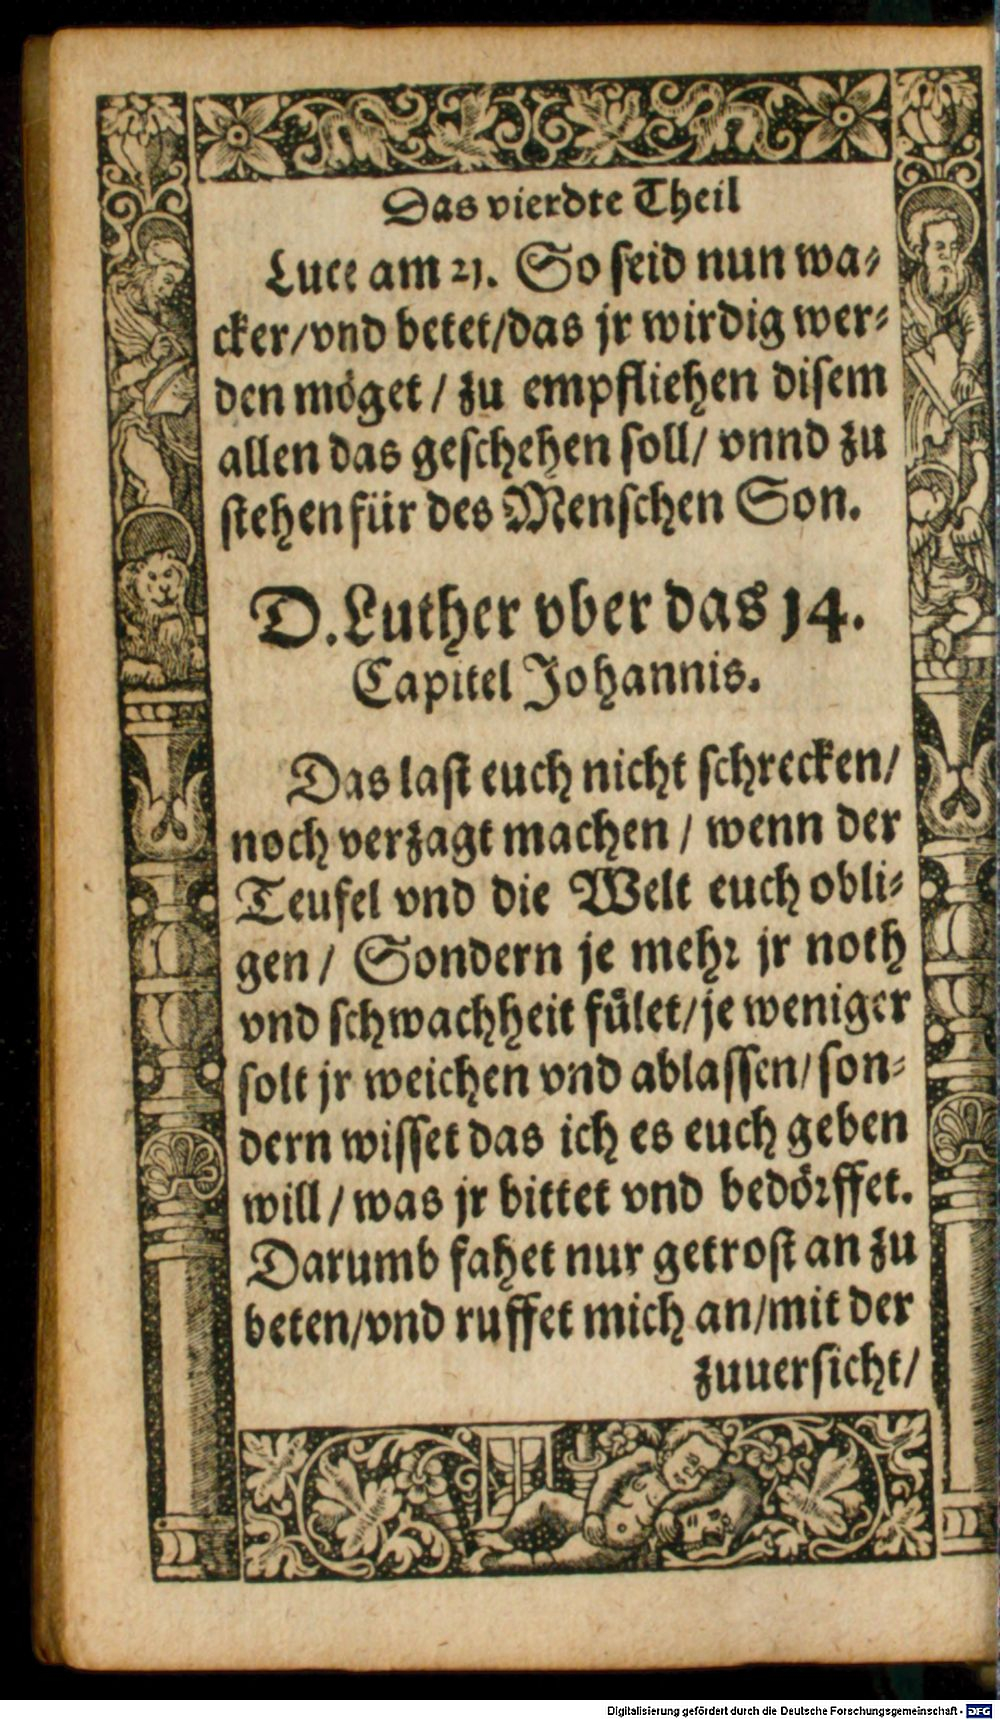 Das vierdte Theil
Luce am 21. So seid nun wa-
cker/vnd betet/das jr wirdig wer-
den möget / zu empfliehen disem
allen das geschehen soll/ vnnd zu
stehen für des Menschen Son.
D. Luther vber das 14.
Capitel Johannis.
Das last euch nicht schrecken/
noch verzagt machen / wenn der
Teufel vnd die Welt euch obli-
gen / Sondern je mehr jr noth
vnd schwachheit fůlet/je weniger
solt jr weichen vnd ablassen/son-
dern wisset das ich es euch geben
will / was jr bittet vnd bedörffet.
Darumb fahet nur getrost an zu
beten/vnd ruffet mich an/mit der
zuuersicht/
Digitalisierung gefördert durch die Deutsche Forschungsgemeinschaft - DFG